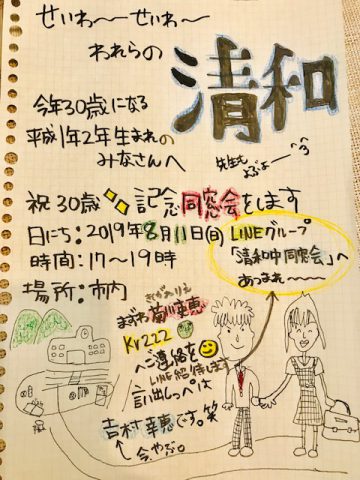 せいわ〜せいわ〜
われらの
清和
今年30歳になる
平成1年2年生まれの
みなさんへ
先生も
よぶよー^^
祝30歳 記念同窓会をします
日にち:2019年8月11日(日)
時間:17〜19時
場所:市内
LINEグループ
「清和中同窓会」へ
あつまれ〜〜〜
まずは菊川幸恵
Kr222
へご連絡を
LINE招待します
言い出しっぺは
吉村幸恵です。笑
今、やぶ。